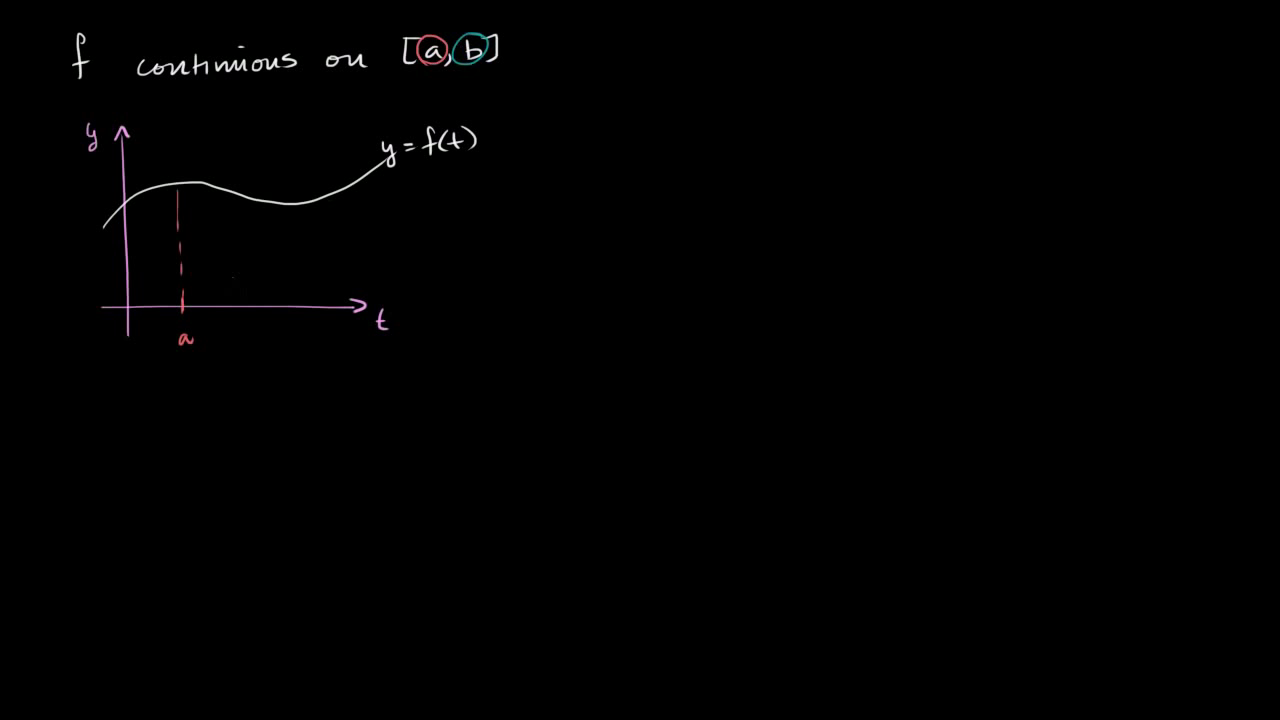 f continious on [a,b]
y
y = f(t)
t
a